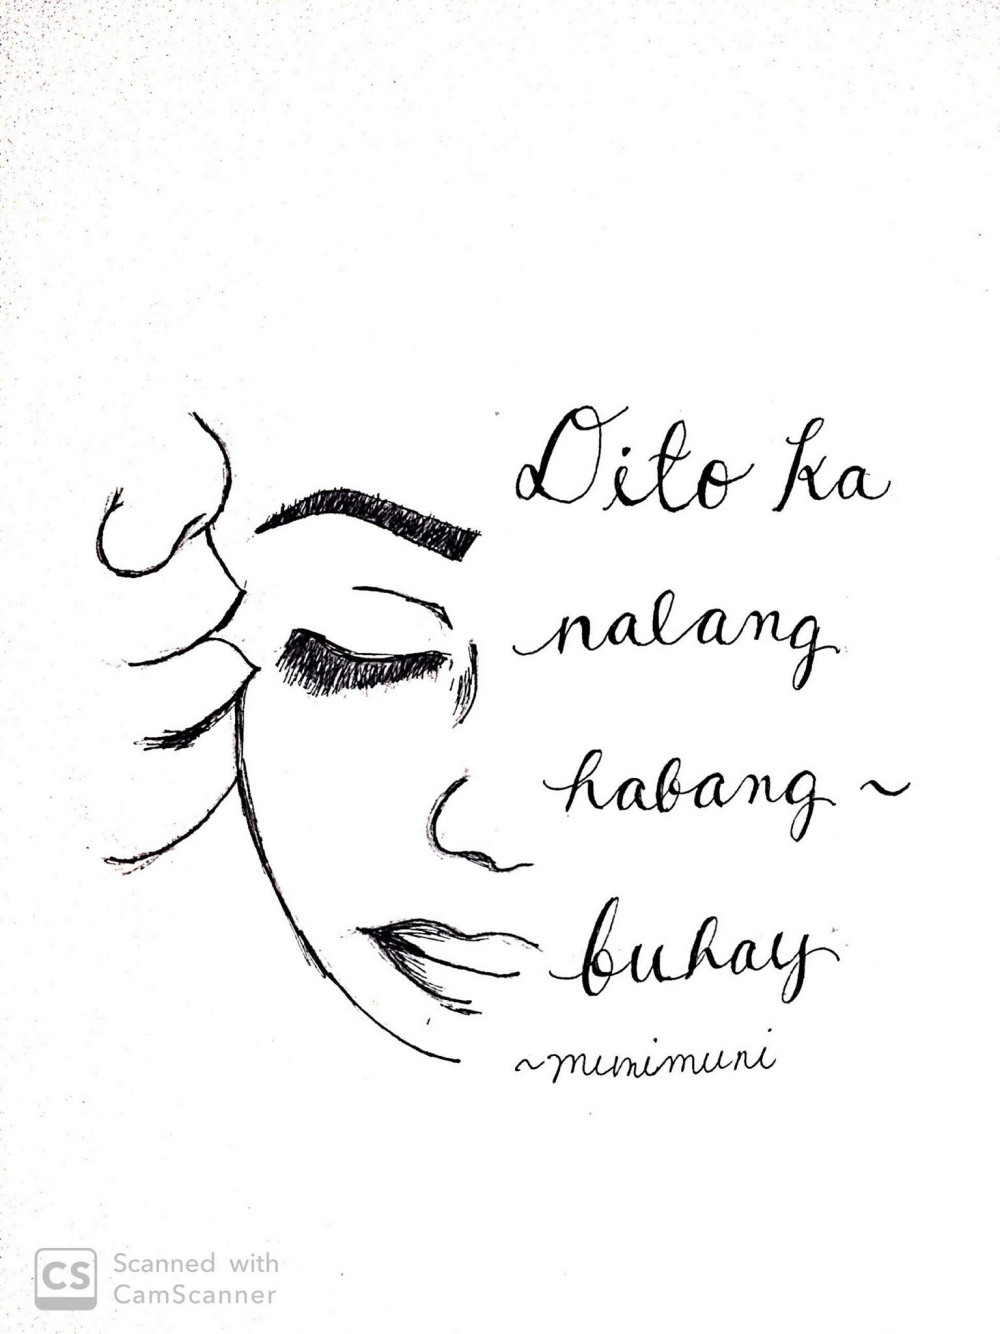 Dito ka
nalang
habang ~
buhay
~munimuni
CS Scanned with
CamScanner